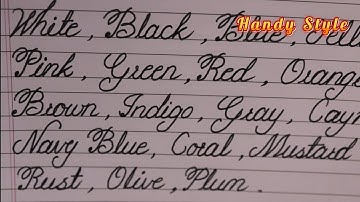 Handy Style
White, Black, Blue, Yell
Pink, Green, Red, Orang
Brown, Indigo, Gray, Cay
Navy Blue, Coral, Mustard
Rust, Olive, Plum.